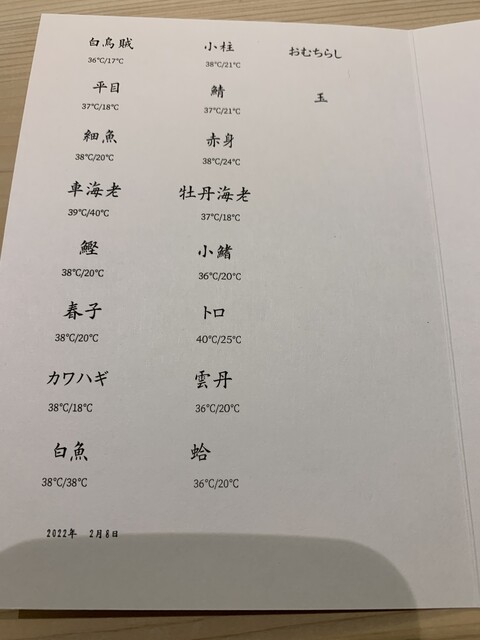 白烏賊
36℃/17℃
平目
37℃/18℃
細魚
38℃/20℃
車海老
39℃/40℃
鰹
38℃/20℃
春子
38℃/20℃
カワハギ
38℃/18℃
白魚
38℃/38℃
小柱
38℃/21℃
鯖
37℃/21℃
赤身
38℃/24℃
牡丹海老
37℃/18℃
小鰭
36℃/20℃
トロ
40℃/25℃
雲丹
36℃/20℃
蛤
36℃/20℃
おむちらし
玉
2022年 2月8日